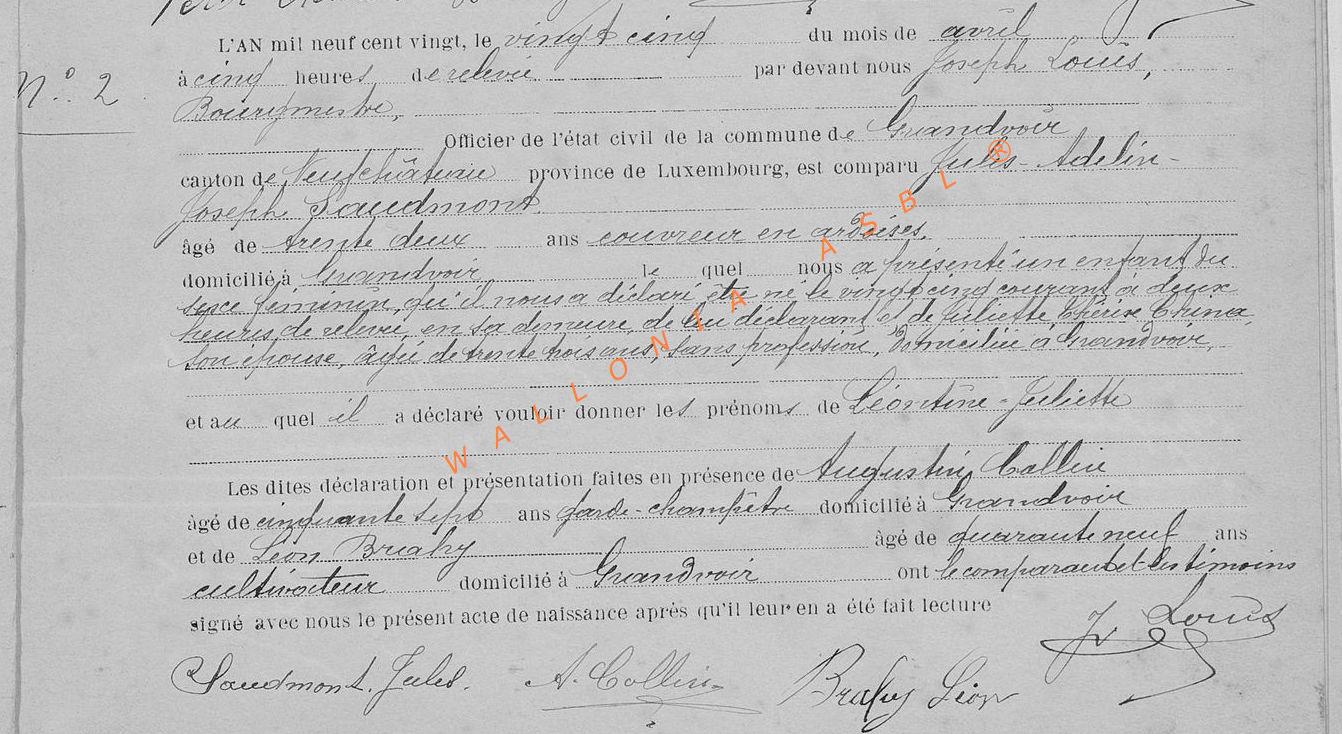 L'AN mil neuf cent vingt, le vingt cinq du mois de avril
N° 2
à cinq heures de relevée par devant nous Joseph Louis,
Bourgmestre,
Officier de l'état civil de la commune de Grandvoir
canton de Neufchâteau province de Luxembourg, est comparu Jules-Adelin-
Joseph Saudmont,
âgé de trente deux ans couvreur en ardoises,
domicilié à Grandvoir le quel nous a présenté un enfant du
sexe féminin, qu'il nous a déclaré être né le vingt cinq courant à deux
heures de relevée, en sa demeure, de lui déclarant et de Juliette
son épouse, âgée de trente trois ans, sans profession, domiciliée à Grandvoir,
et au quel il a déclaré vouloir donner les prénoms de Léontine-Juliette
Les dites déclaration et présentation faites en présence de Augustin Collin
âgé de cinquante sept ans garde-champêtre domicilié à Grandvoir
et de Léon Brahy âgé de quarante neuf ans
cultivateur domicilié à Grandvoir ont le comparant et les témoins
signé avec nous le présent acte de naissance après qu'il leur en a été fait lecture
J. Louis
Saudmont. Jules. A. Collin Brahy Léon
WALLONIA ASBL ®